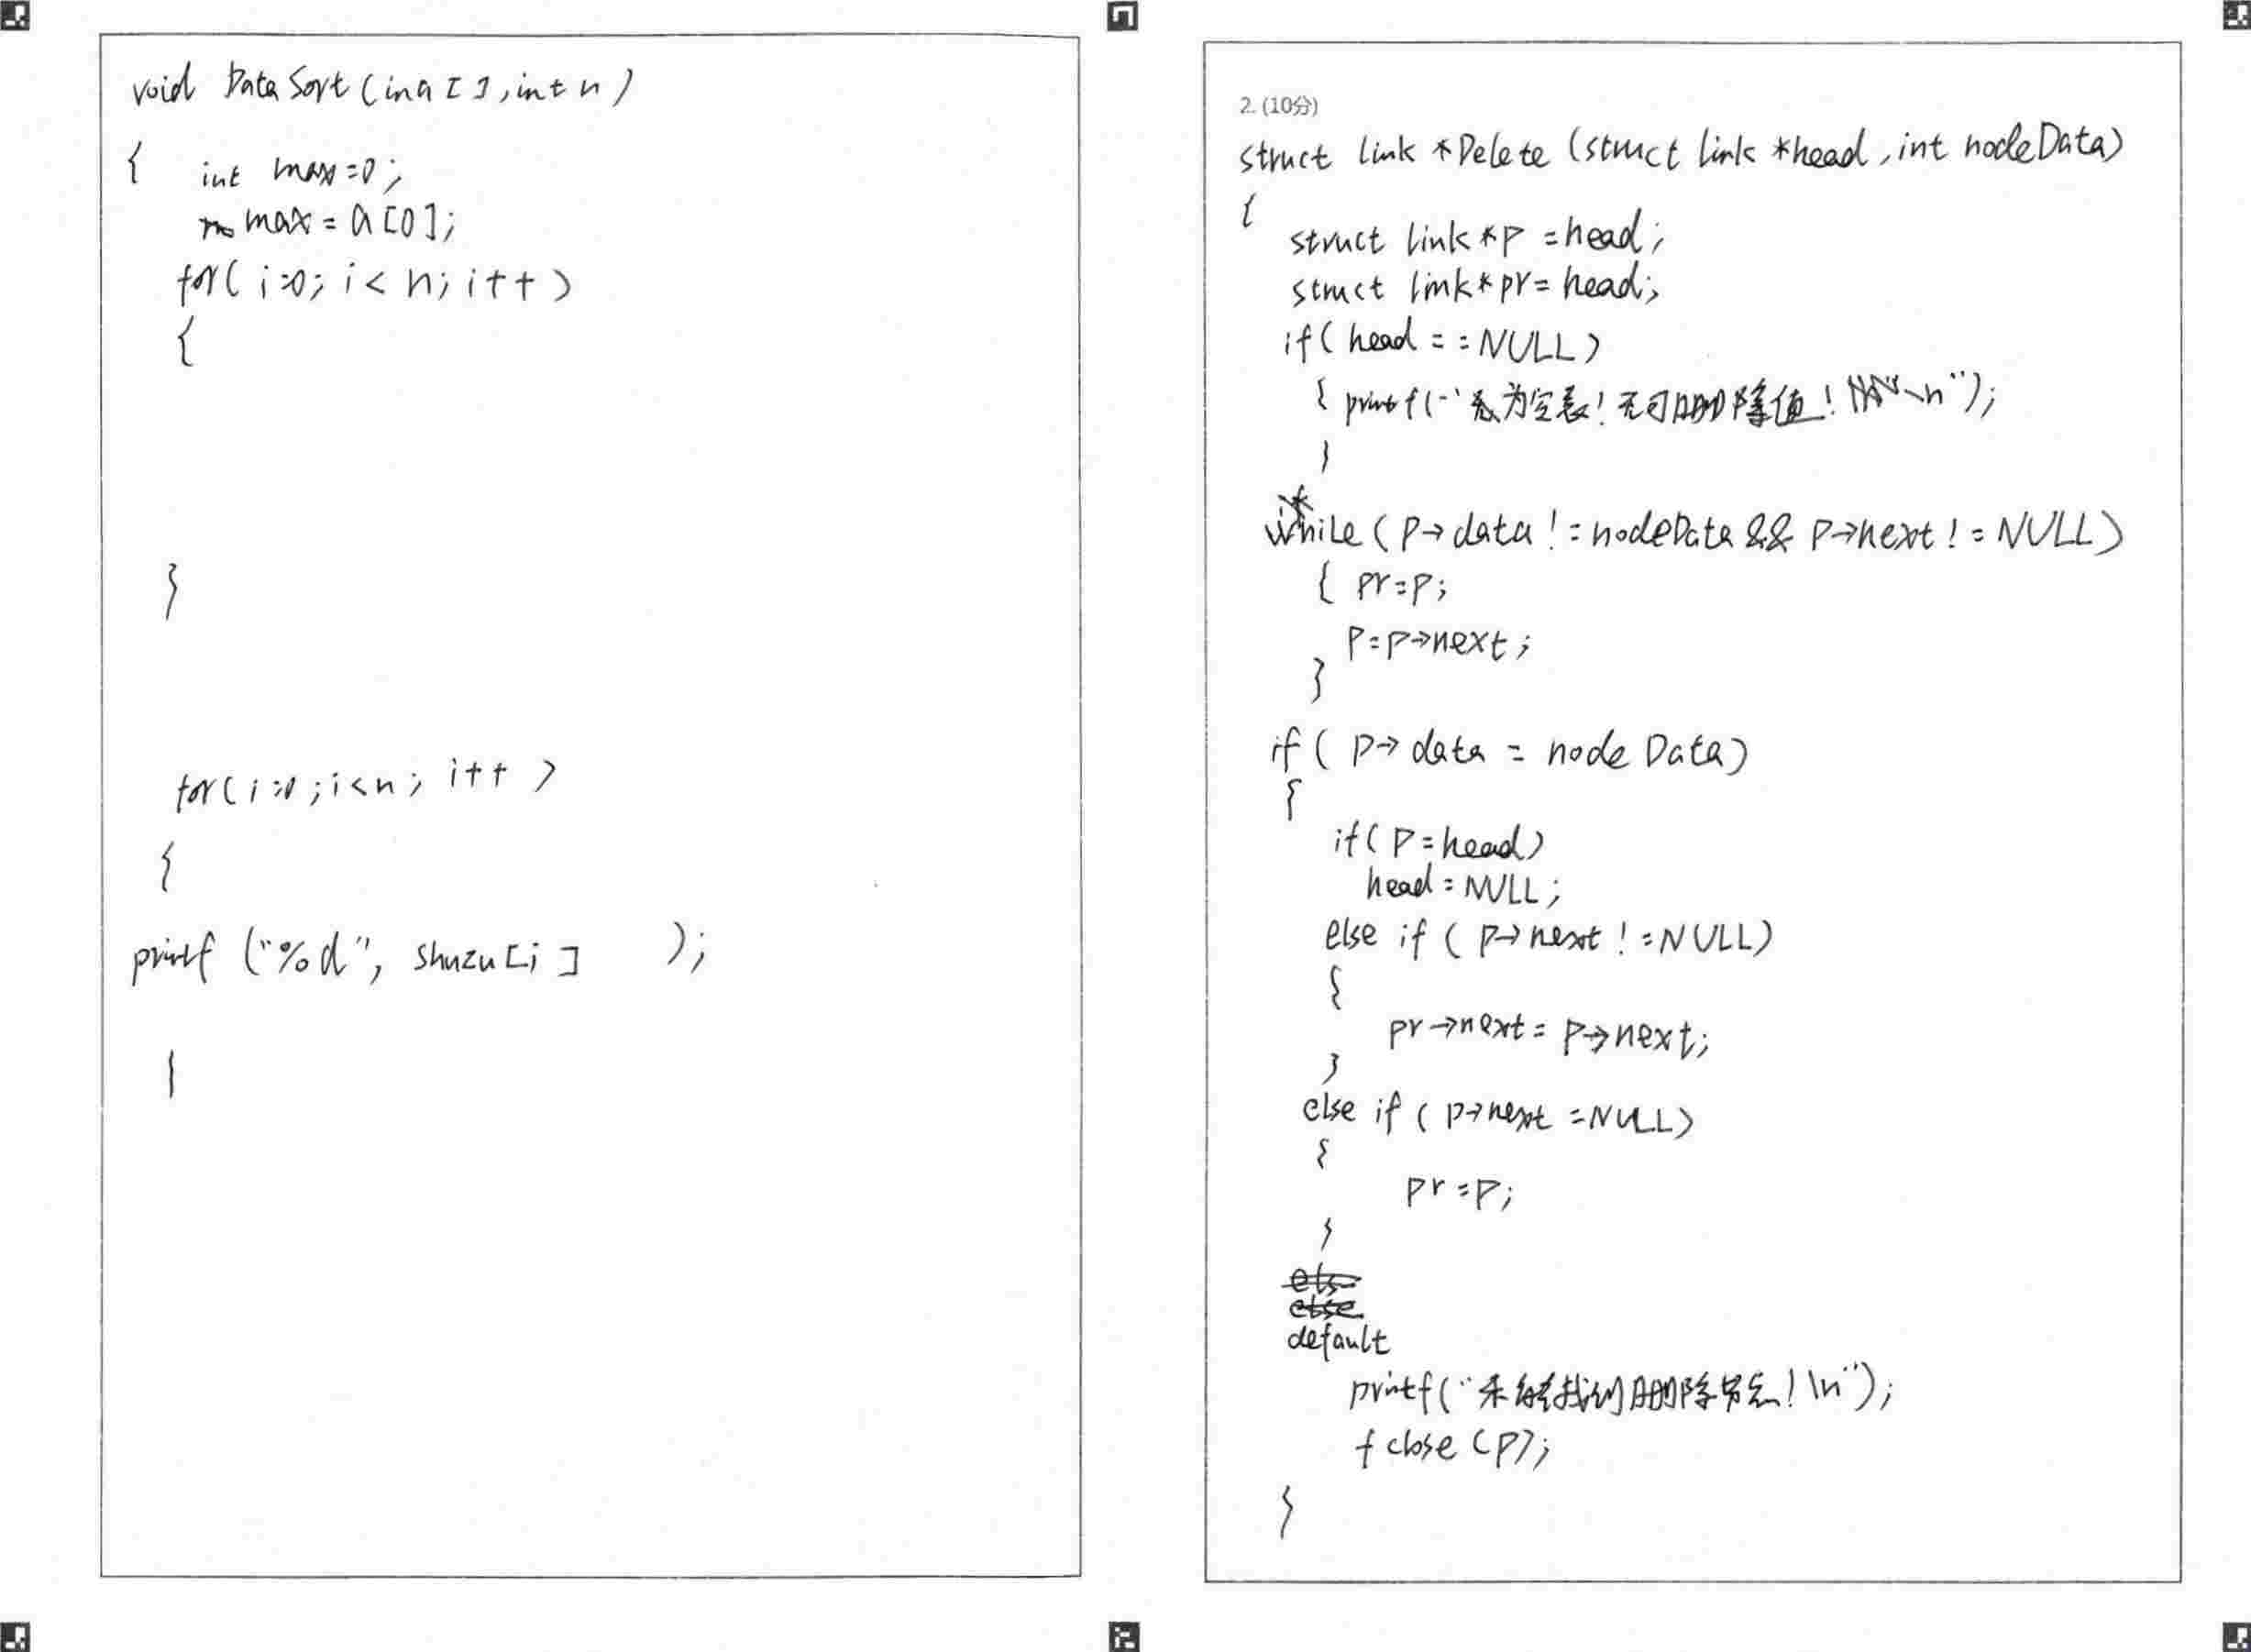 void DataSort(ina[],int n)
{ int max=0;
max=a[0];
for(i=0;i<n;i++)
{
}
for(i=0;i<n;i++)
{
printf("%d",shuzu[i] );
}
2. (10分)
struct link *Delete(struct link *head,int nodeData)
{
struct link*p=head;
struct link*pr=head;
if(head==NULL)
{ printf("表为空表!无可删除值!\n");
}
while(p→data!=nodeData&&p→next!=NULL)
{ pr=p;
p=p→next;
}
if(p→data=nodeData)
{
if(p=head)
head=NULL;
else if(p→next!=NULL)
{
pr→next=p→next;
}
else if(p→next=NULL)
{
pr=p;
}
els
else
default
printf("未能找到删除节点!\n");
fclose(p);
}